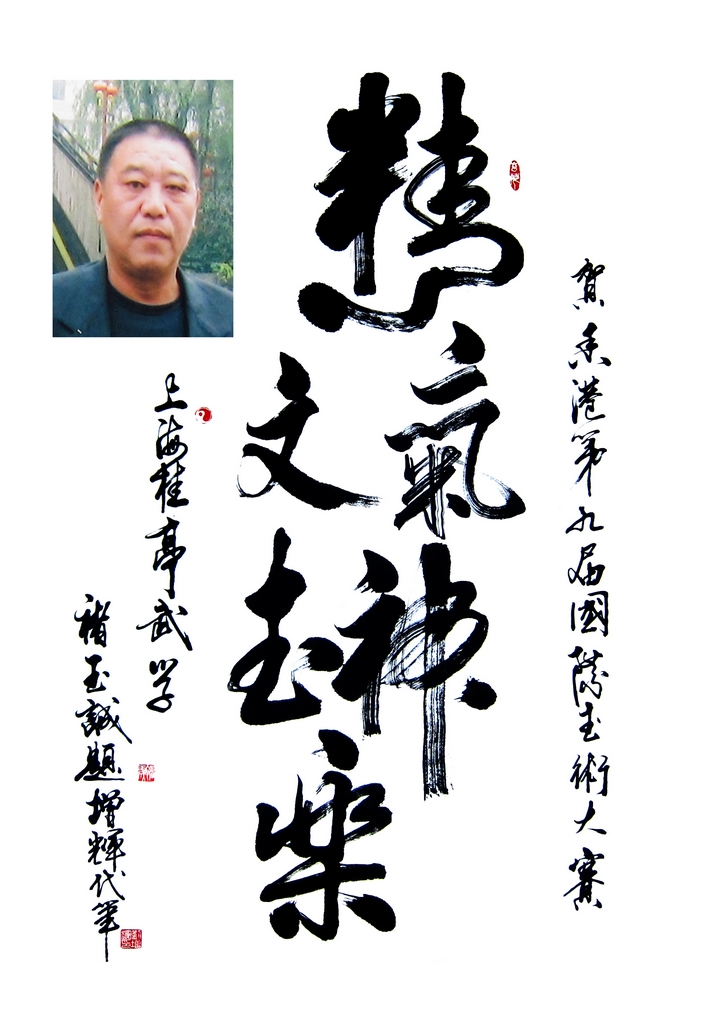 賀香港第九届國際武術大賽
精氣神
文武樂
上海桂亭武学
褚玉誠題增輝代筆